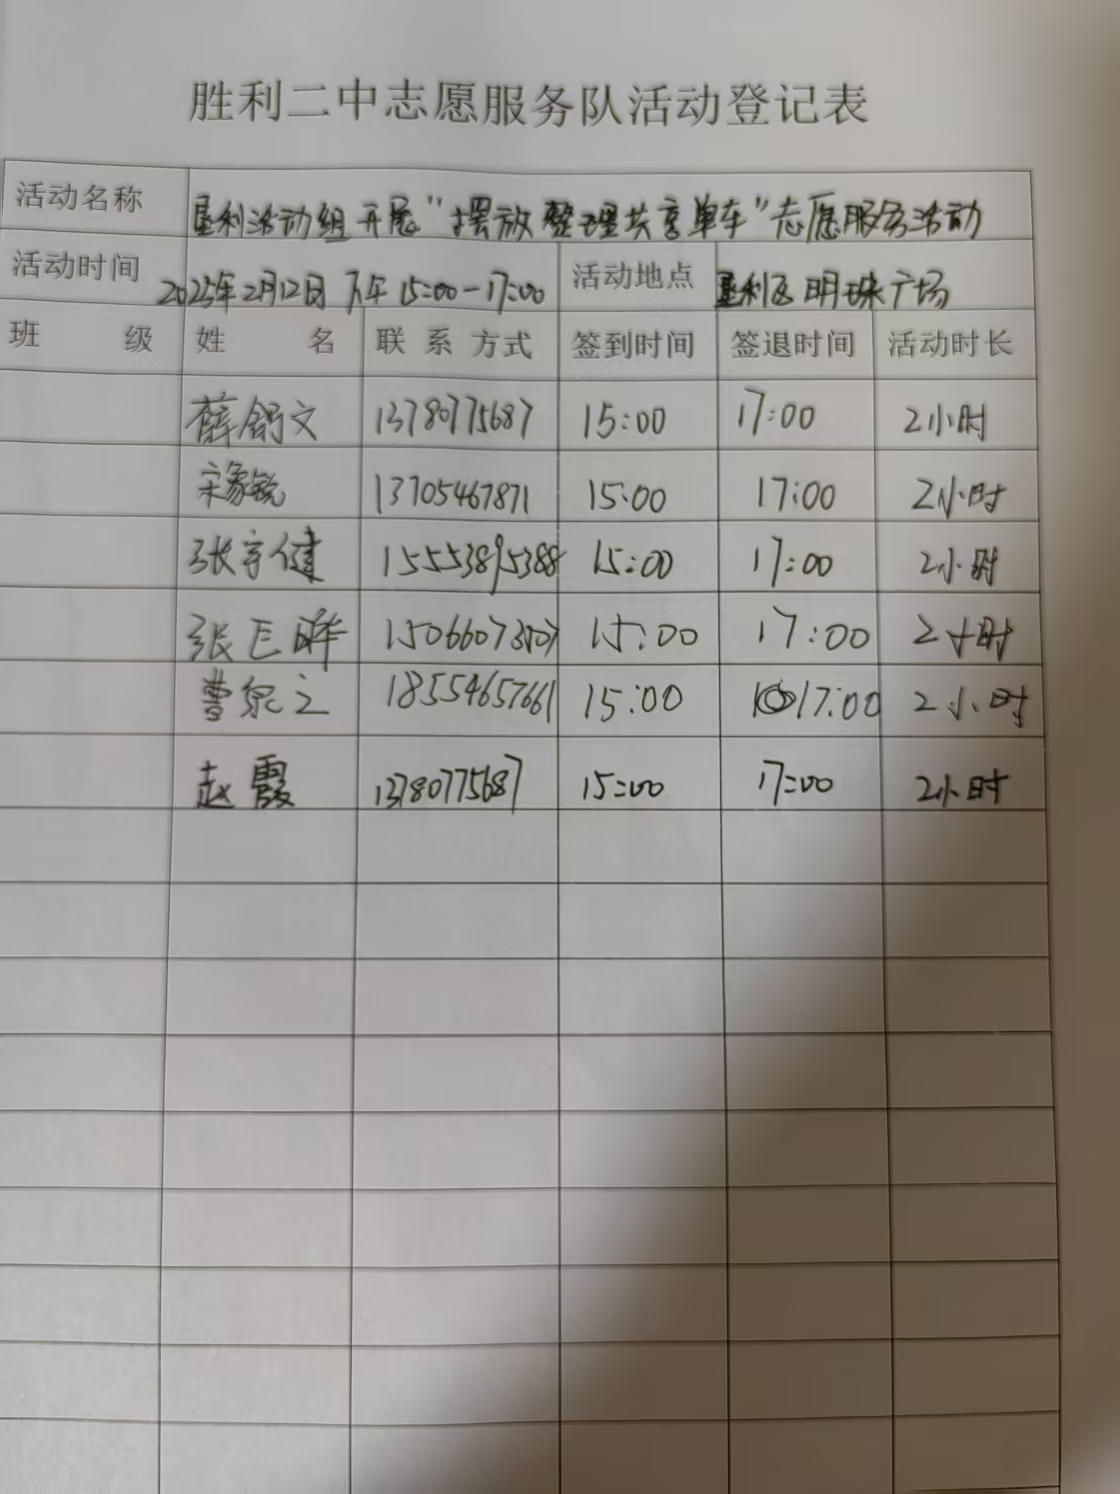 胜利二中志愿服务队活动登记表
活动名称 垦利活动组开展“摆放整理共享单车”志愿服务活动
活动时间 2025年2月12日 下午 15:00-17:00 活动地点 垦利区明珠广场
班级 姓名 联系方式 签到时间 签退时间 活动时长
薛舒文 13780775687 15:00 17:00 2小时
宋家锐 13705467871 15:00 17:00 2小时
张宇健 15553895388 15:00 17:00 2小时
张巨晔 15:00 17:00 2小时
曹泉之 18554657661 15:00 17:00 2小时
赵霞 13780775687 15:00 17:00 2小时